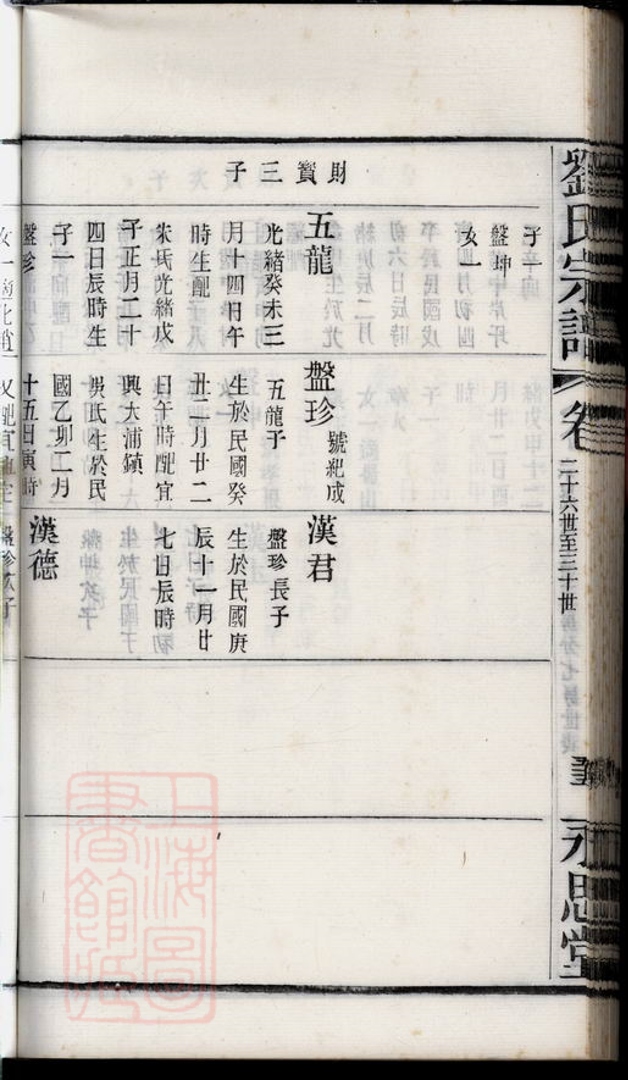 劉氏宗譜
卷
二十六世至三十世
永思堂
財寶三子
子一
盤坤
女一
五龍
光緒癸未三
月十四日午
時生配
朱氏光緒戊
子正月二十
四日辰時生
子一
盤珍
盤珍 號紀成
五龍子
生於民國癸
丑二月廿二
日午時配宜
興大浦鎮
吳氏生於民
國乙卯二月
十五日寅時
漢君
盤珍長子
生於民國庚
辰十一月廿
七日辰時
漢德
盤珍次子
上海圖
書館藏